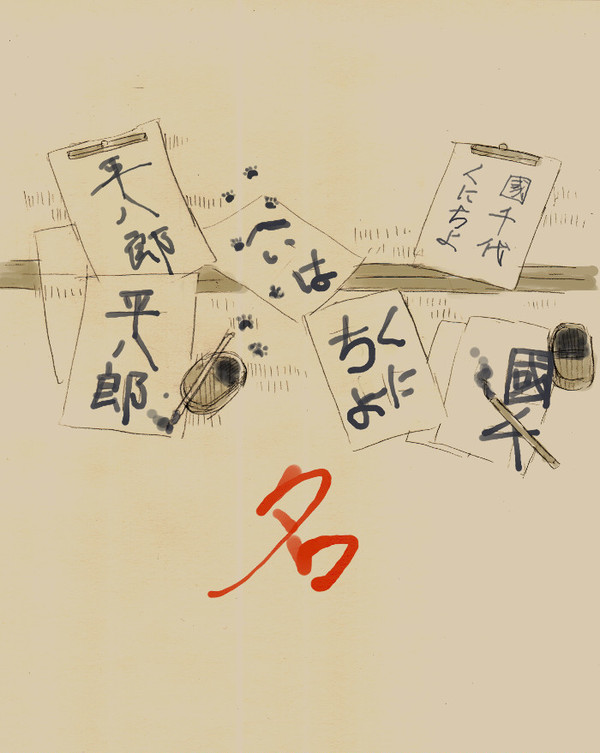 平八郎
へいは
國千代
くにちよ
平八郎
くに
ちよ
國千
名